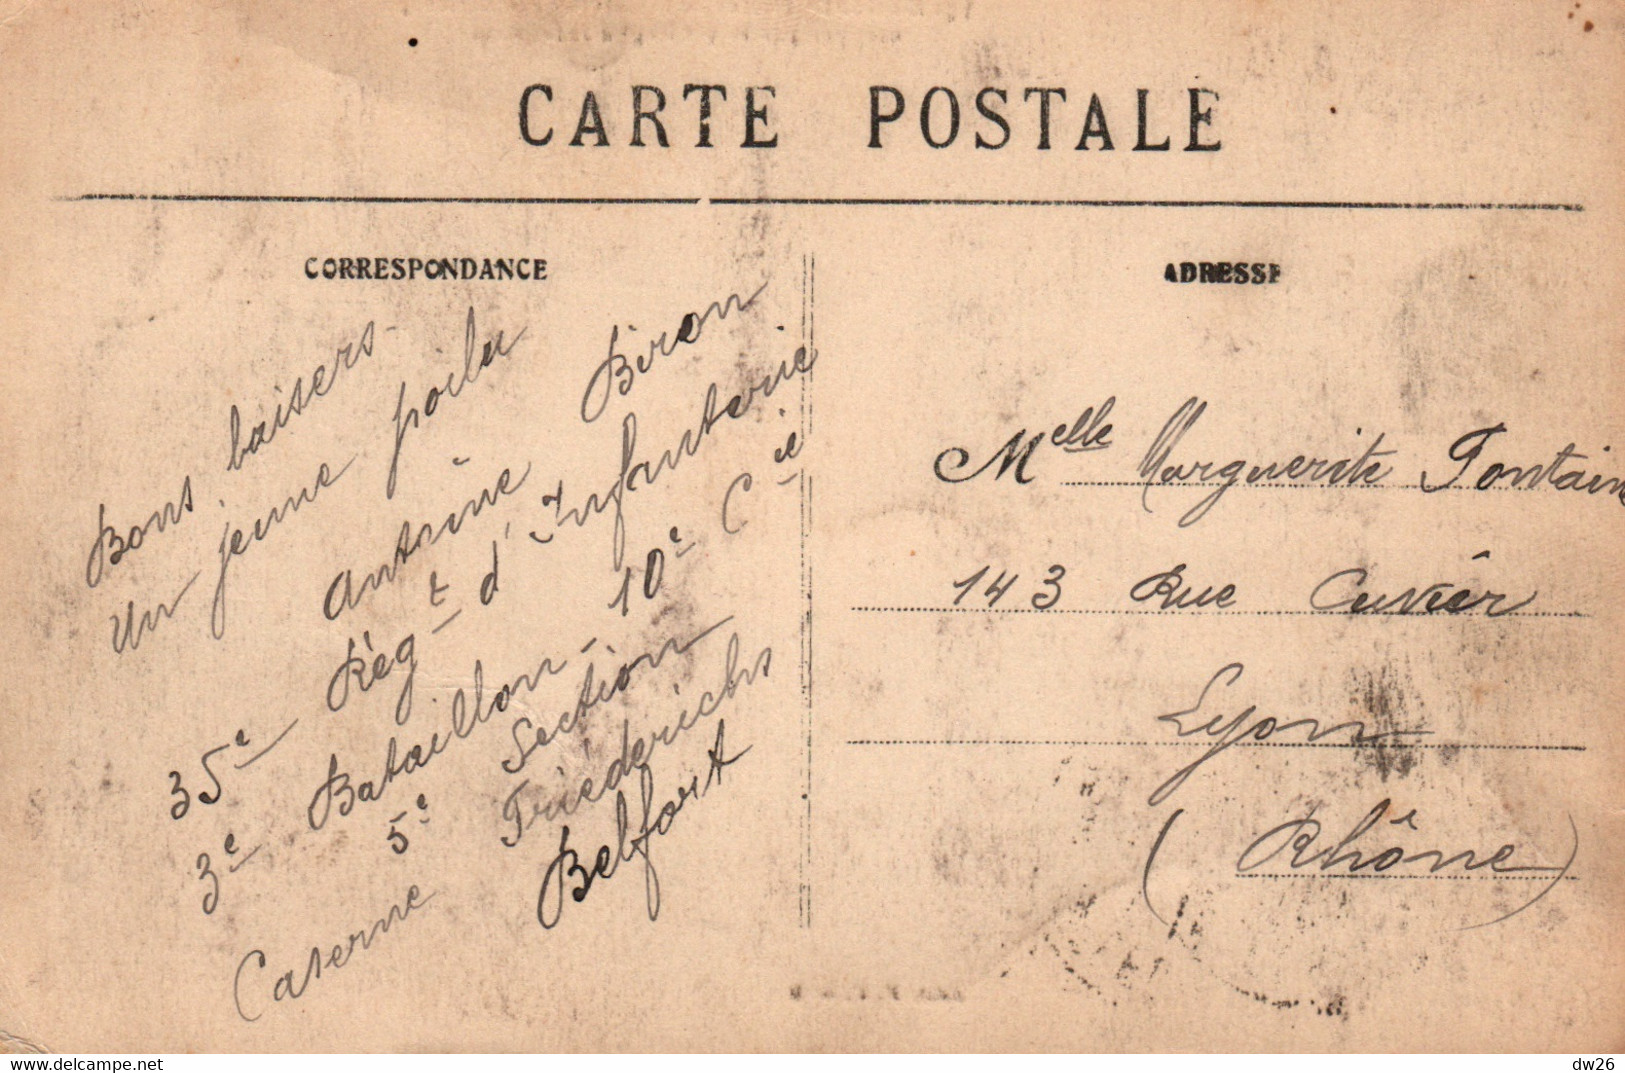 CARTE POSTALE
CORRESPONDANCE
Bons baisers
Un jeune poilu
Antoine Biron
35e Régt d'Infanterie
3e Bataillon - 10e Cie
5e Section
Caserne Friédérichs
Belfort
ADRESSE
Melle Marguerite Fontaine
143 Rue Cuvier
Lyon
(Rhône)
www.delcampe.net
dw26